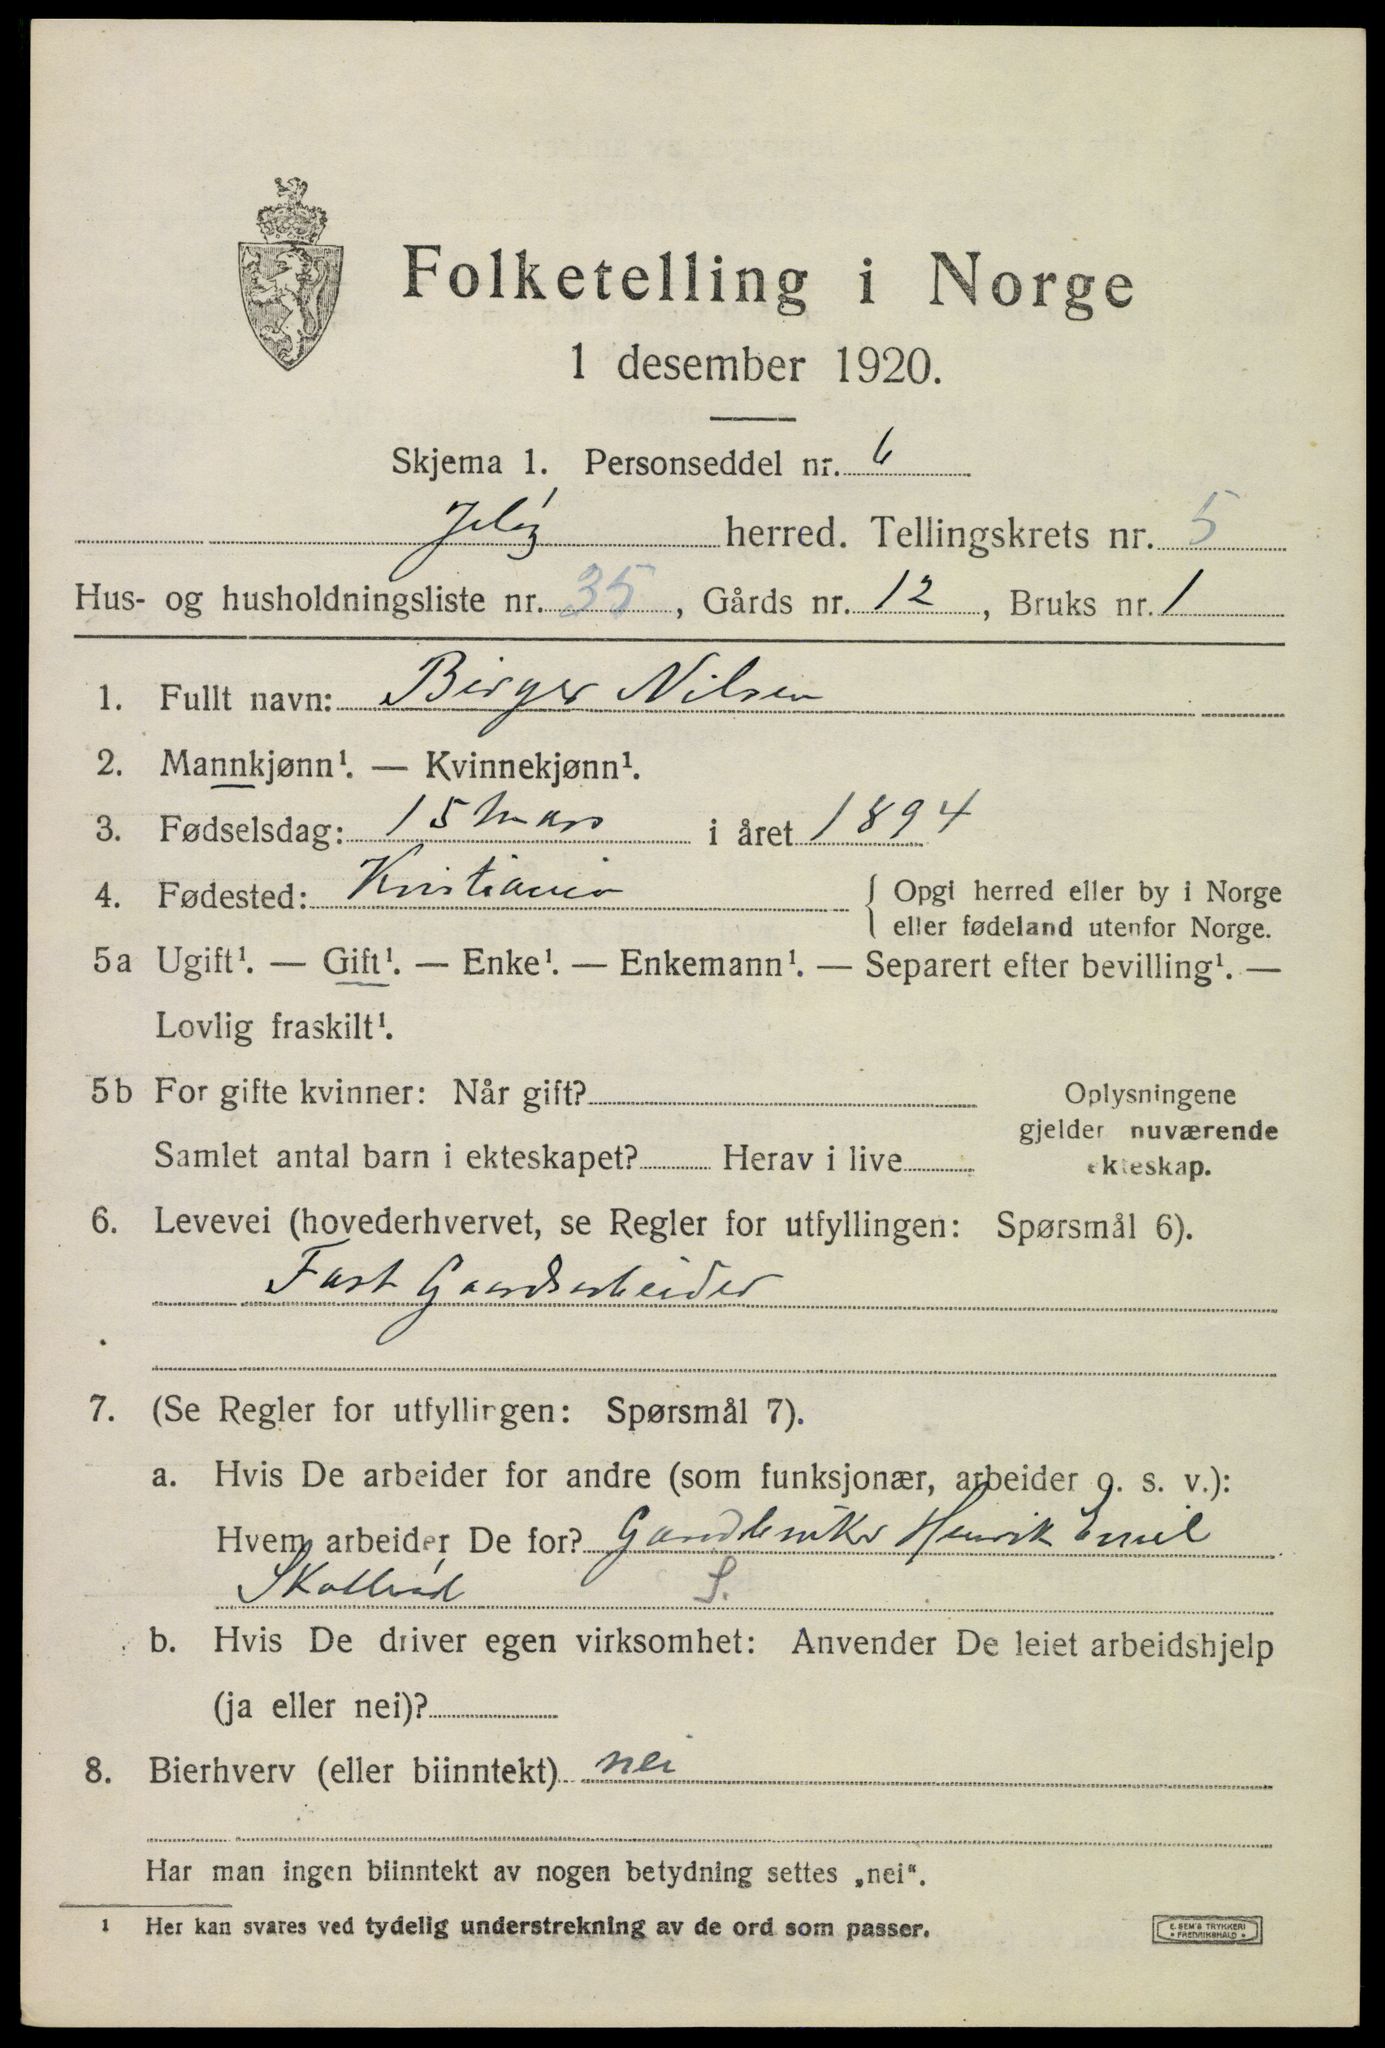 Folketelling i Norge
1 desember 1920.
Skjema 1. Personseddel nr. 6
Jeløy herred. Tellingskrets nr. 5
Hus- og husholdningsliste nr. 35, Gårds nr. 12, Bruks nr. 1
1. Fullt navn: Birger Nilsen
2. Mannkjønn¹. — Kvinnekjønn¹.
3. Fødselsdag: 15 Mars i året 1894
4. Fødested: Kristiania { Opgi herred eller by i Norge
eller fødeland utenfor Norge.
5a Ugift¹. — Gift¹. — Enke¹. — Enkemann¹. — Separert efter bevilling¹. —
Lovlig fraskilt¹.
5b For gifte kvinner: Når gift? Oplysningene
gjelder nuværende
Samlet antal barn i ekteskapet? Herav i live ekteskap.
6. Levevei (hovederhvervet, se Regler for utfyllingen: Spørsmål 6).
Fast Gaardsarbeider
7. (Se Regler for utfyllingen: Spørsmål 7).
a. Hvis De arbeider for andre (som funksjonær, arbeider o. s. v.):
Hvem arbeider De for? Gaardbruker Henrik Emil
Skallerød S.
b. Hvis De driver egen virksomhet: Anvender De leiet arbeidshjelp
(ja eller nei)?
8. Bierhverv (eller biinntekt) nei
Har man ingen biinntekt av nogen betydning settes „nei“.
¹ Her kan svares ved tydelig understrekning av de ord som passer.
E. SEM'S TRYKKERI
FREDRIKSHALD